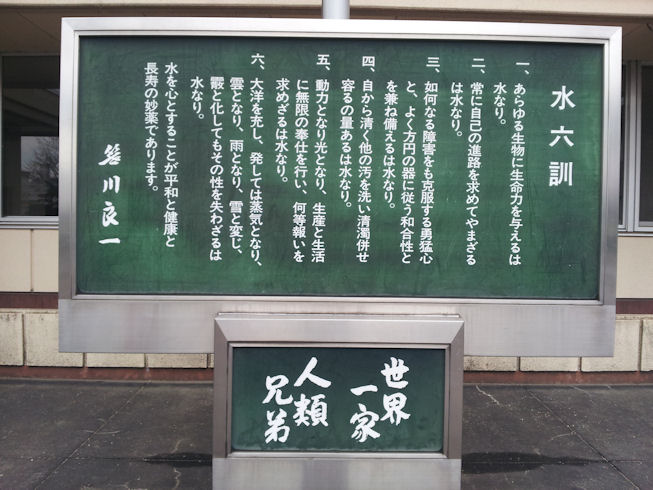 水六訓
一、あらゆる生物に生命力を与えるは
水なり。
二、常に自己の進路を求めてやまざる
は水なり。
三、如何なる障害をも克服する勇猛心
と、よく方円の器に従う和合性と
を兼ね備えるは水なり。
四、自から清く他の汚を洗い清濁併せ
容るの量あるは水なり。
五、動力となり光となり、生産と生活
に無限の奉仕を行い、何等報いを
求めざるは水なり。
六、大洋を充し、発しては蒸気となり、
雲となり、雨となり、雪と変じ、
霰と化してもその性を失わざるは
水なり。
水を心とすることが平和と健康と
長寿の妙薬であります。
笹川良一
世界
一家
人類
兄弟